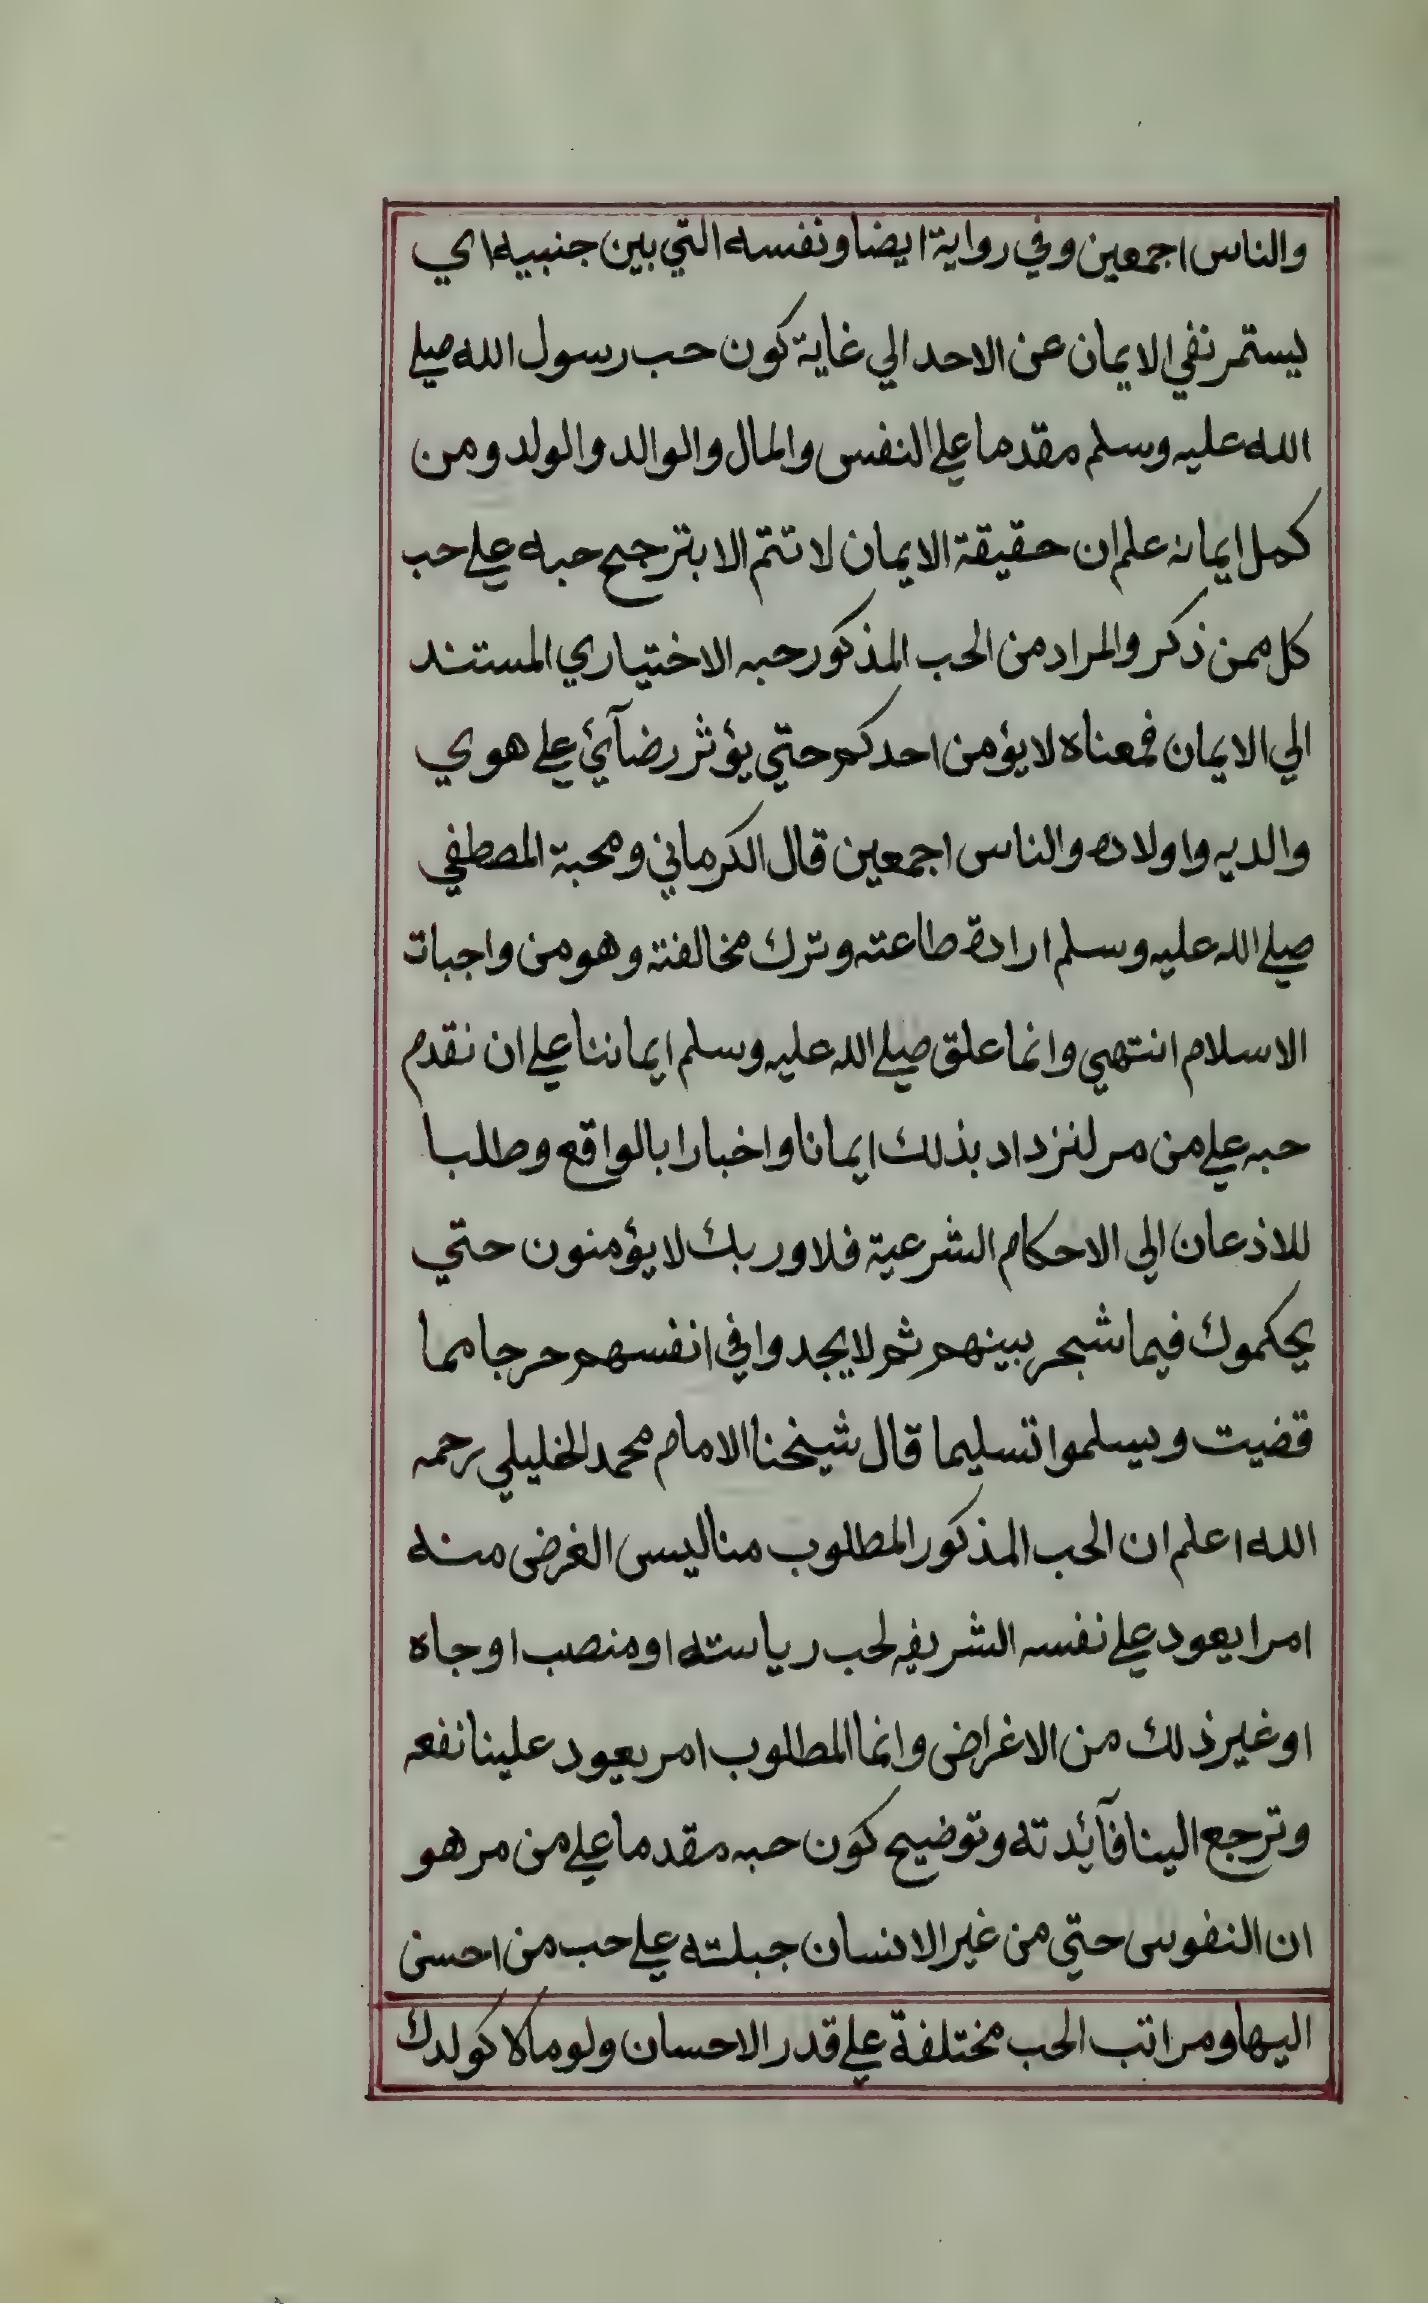 والناس اجمعين وفي رواية ايضا ونفسه التي بين جنبيه اي
يستمر نفي الايمان عن الاحد الي غاية كون حب رسول الله صلي
الله عليه وسلم مقدما علي النفس والمال والوالد والولد ومن
كمل ايمانه علم ان حقيقة الايمان لا تتم الا بترجيح حبه علي حب
كل ممن ذكر والمراد من الحب المذكور حبه الاختياري المستند
الي الايمان فمعناه لا يؤمن احدكم حتي يؤثر رضآئي علي هوي
والديه واولاده والناس اجمعين قال الكرماني ومحبة المصطفي
صلي الله عليه وسلم ارادة طاعته وترك مخالفته وهو من واجبات
الاسلام انتهي وانما علق صلي الله عليه وسلم ايماننا علي ان نقدم
حبه علي من مر لنزداد بذلك ايمانا واخبارا بالواقع وطلبا
للاذعان الي الاحكام الشرعية فلا وربك لا يؤمنون حتي
يحكموك فيما شجر بينهم ثم لا يجدوا في انفسهم حرجا مما
قضيت ويسلموا تسليما قال شيخنا الامام محمد الخليلي رحمه
الله اعلم ان الحب المذكور المطلوب منا ليس الغرض منه
امرا يعود علي نفسه الشريفه لحب رياسته او منصب او جاه
او غير ذلك من الاغراض وانما المطلوب امر يعود علينا نفعه
وترجع الينا فآئدته وتوضيح كون حبه مقدما علي من مر هو
ان النفوس حتي من غير الانسان جبلته علي حب من احسن
اليها ومراتب الحب مختلفة علي قدر الاحسان ولو مآلا كولدك